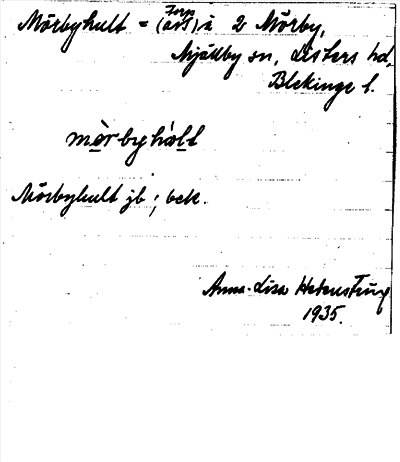 Mörbyhult = (torp) å 2 Mörby,
Mjällby sn, Listers hd,
Blekinge l.
mȯrbyhȧlt
Mörbyhult jb ; bek.
Anna-Lisa
1935.